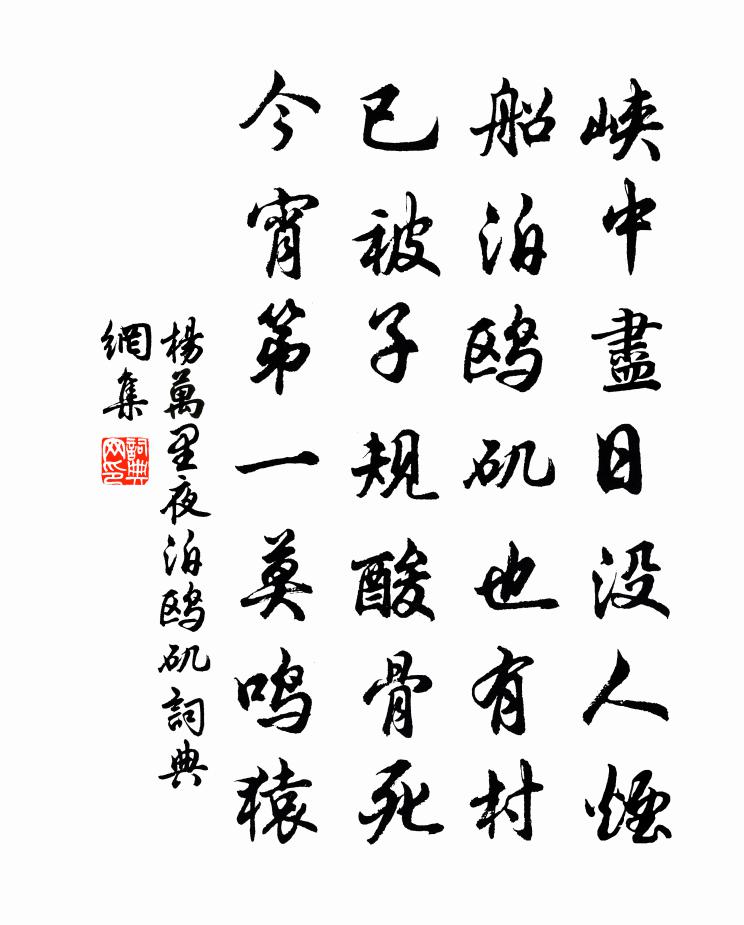 峽中盡日没人煙
船泊鸥矶也有村
已被子规酸骨死
今宵第一莫鸣猿
楊萬里夜泊鸥矶詞典
網集
詞典
网印